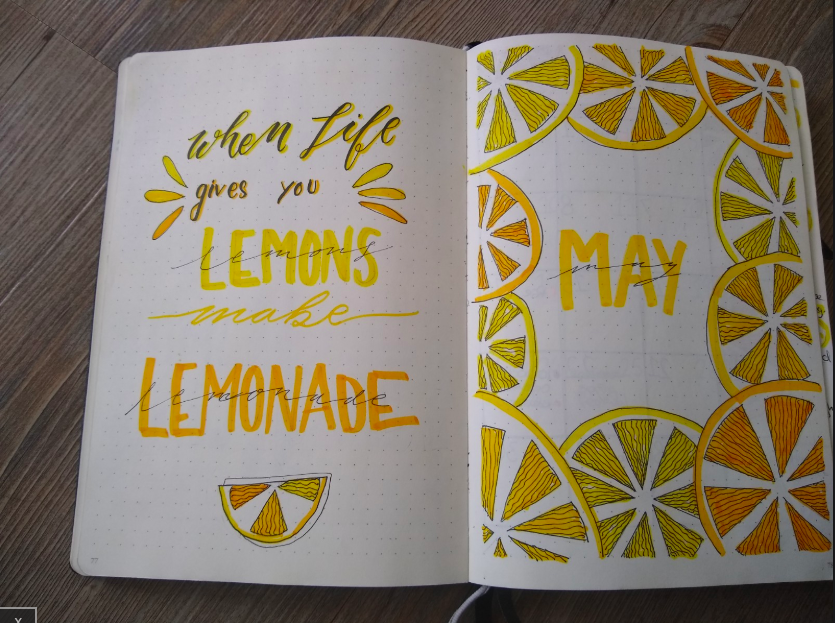 when Life
gives you
LEMONS
lemons
make
LEMONADE
lemonade
MAY
may
x